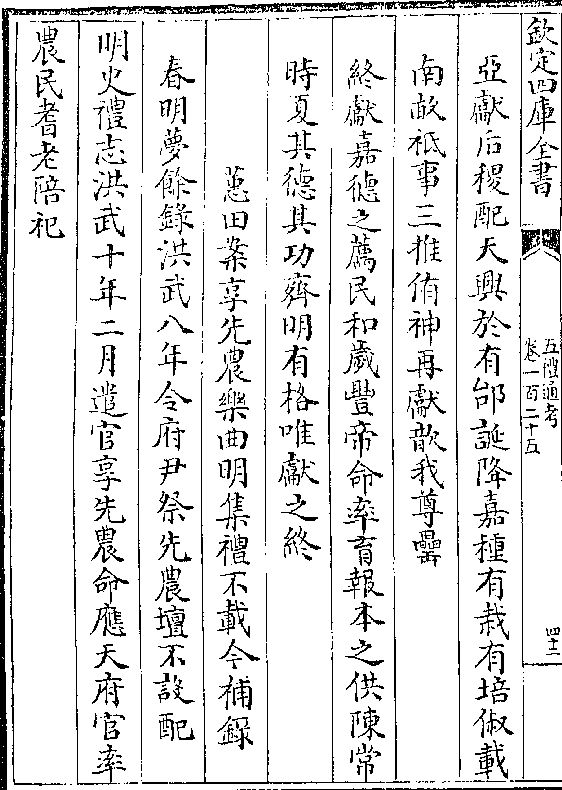 欽定四庫全書
五禮通考
卷一百二十五
四十二
亞獻后稷配天興於有邰誕降嘉種有栽有培俶載
南畝祗事三推侑神再獻歆我尊罍
終獻嘉德之薦民和歲豐帝命率育報本之供陳常
時夏其德其功齊明有格唯獻之終
蕙田案享先農樂曲明集禮不載今補錄
春明夢餘錄洪武八年令府尹祭先農壇不設配
明史禮志洪武十年二月遣官享先農命應天府官率
農民耆老陪祀